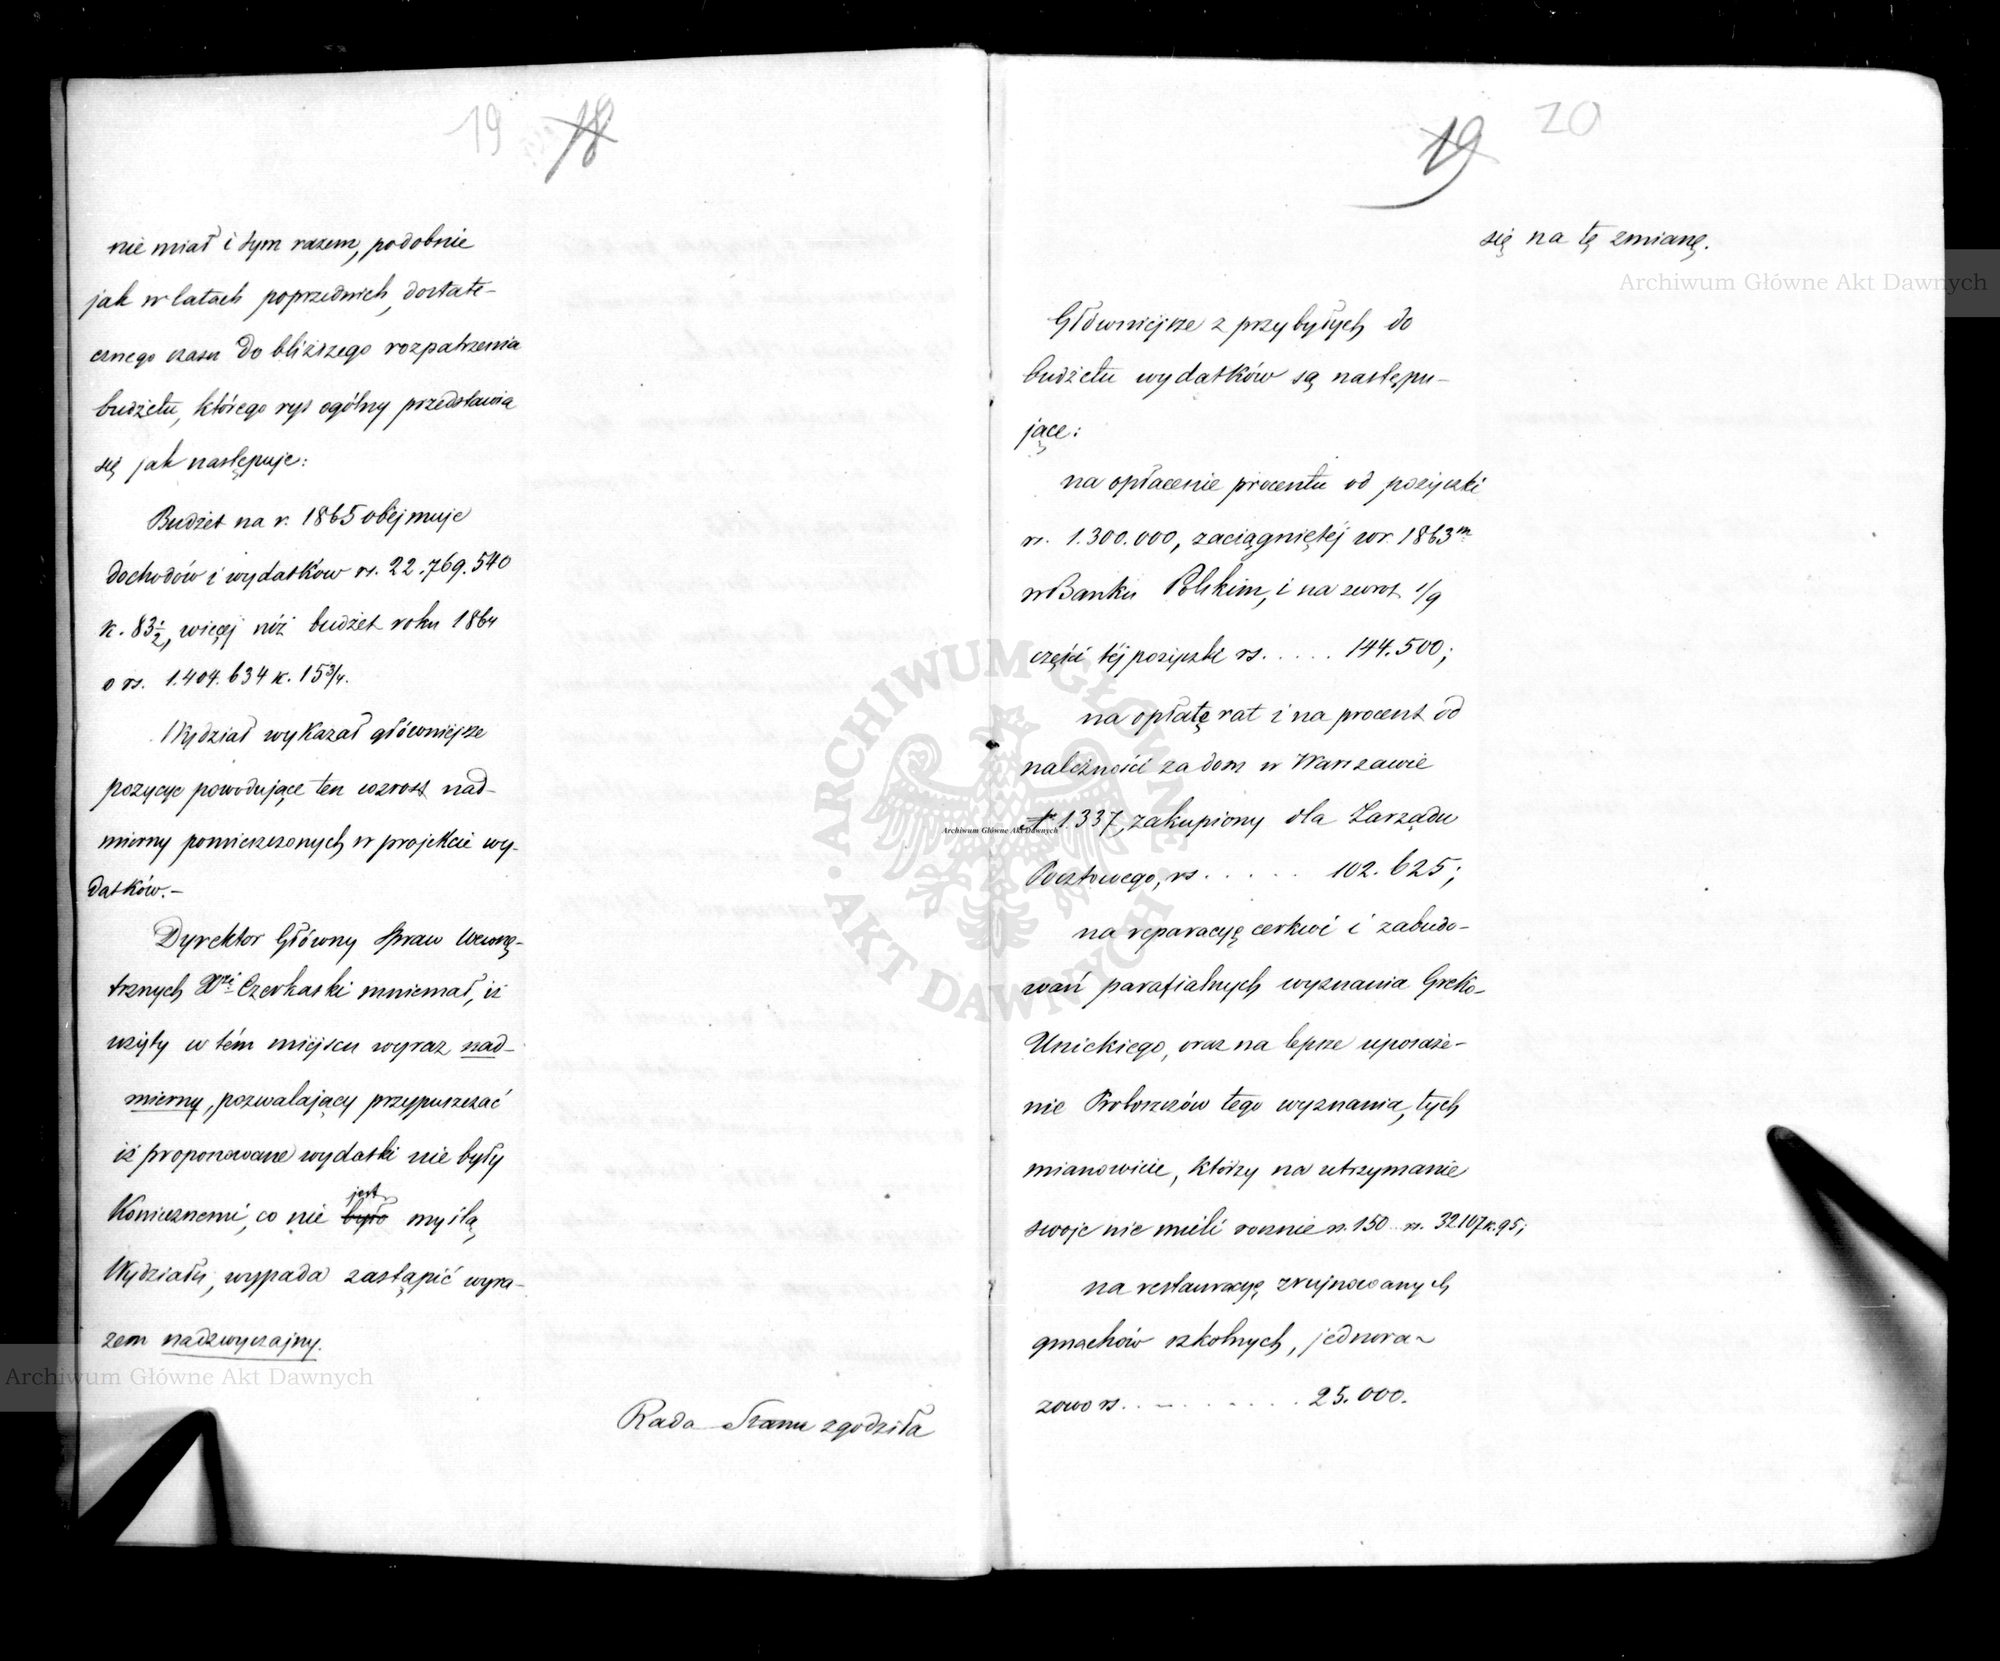 19 18
nie miał i tym razem, podobnie
jak w latach poprzednich, dostate-
cznego czasu do bliższego rozpatrzenia
budżetu, którego rys ogólny przedstawia
się jak następuje:
Budżet na r. 1865 obejmuje
dochodów i wydatków rs. 22.769.540
k. 83½, więcej niż budżet roku 1864
o rs. 1.404.634 k. 15¾.
Wydział wykazał główniejsze
pozycye powodujące ten wzrost nad-
mierny pomieszczonych w projekcie wy-
datków.-
Dyrektor Główny Spraw Wewnę-
trznych Xże Czerkaski mniemał, iż
użyty w tém miejscu wyraz nad-
mierny, pozwalający przypuszczać
iż proponowane wydatki nie były
koniecznemi, co nie było jest myślą
Wydziału, wypada zastąpić wyra-
zem nadzwyczajny.
Rada Stanu zgodziła
19 20
się na tę zmianę.
Główniejsze z przybyłych do
budżetu wydatków są następu-
jące:
na opłacenie procentu od pożyczki
rs. 1.300.000, zaciągniętéj w r. 1863m
w Banku Polskim, i na zwrot 1/9
części téj pożyczki rs. . . . . . 144.500;
na opłatę rat i na procent od
należności za dom w Warszawie
Nr 1337, zakupiony dla Zarządu
Pocztowego, rs. . . . . . 102.625;
na reparacyę cerkwi i zabudo-
wań parafialnych wyznania Greko-
Unickiego, oraz na lepsze uposaże-
nie Proboszczów tego wyznania, tych
mianowicie, którzy na utrzymanie
swoje nie mieli rocznie rs. 150 rs. 32107 k. 95;
na restauracyę zrujnowanych
gmachów szkolnych, jednora-
zowo rs. . . . . . . . . 25.000.
Archiwum Główne Akt Dawnych
Archiwum Główne Akt Dawnych
Archiwum Główne Akt Dawnych
ARCHIWUM GŁÓWNE • AKT DAWNYCH •